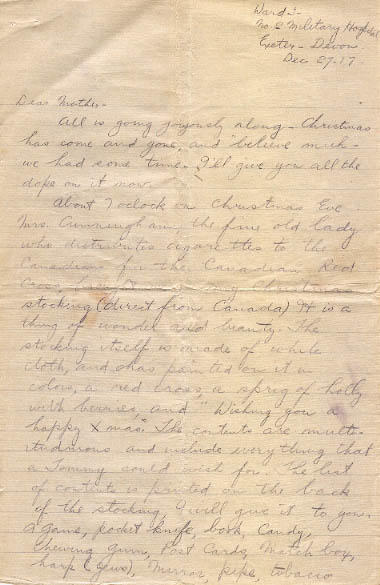 Ward 2-
No. 2 Military Hospital
Exeter - Devon
Dec 27-17
Dear Mother-
All is going joyously along - Christmas
has come and gone, and "believe muh-
we had some time. I'll give you all the
dope on it now.
About 7 oclock on Christmas Eve
Mrs. Cunningham, the fine old lady
who distributes cigarettes to the
Canadians for the Canadian Red
Cross, my Christmas
stocking (direct from Canada) It is a
thing of wonder and beauty. The
stocking itself is made of white
cloth, and has painted on it in
colors, a red cross, a sprig of holly
with berries, and "Wishing you a
happy Xmas". The contents are multi-
tudinous and include everything that
a Tommy could wish for. The list
of contents is printed on the back
of the stocking, I will give it to you.
A game, pocket knife, book, Candy,
Chewing Gum, Post Cards, Match box,
harp (Jews), Mirror, pipe, tobacco